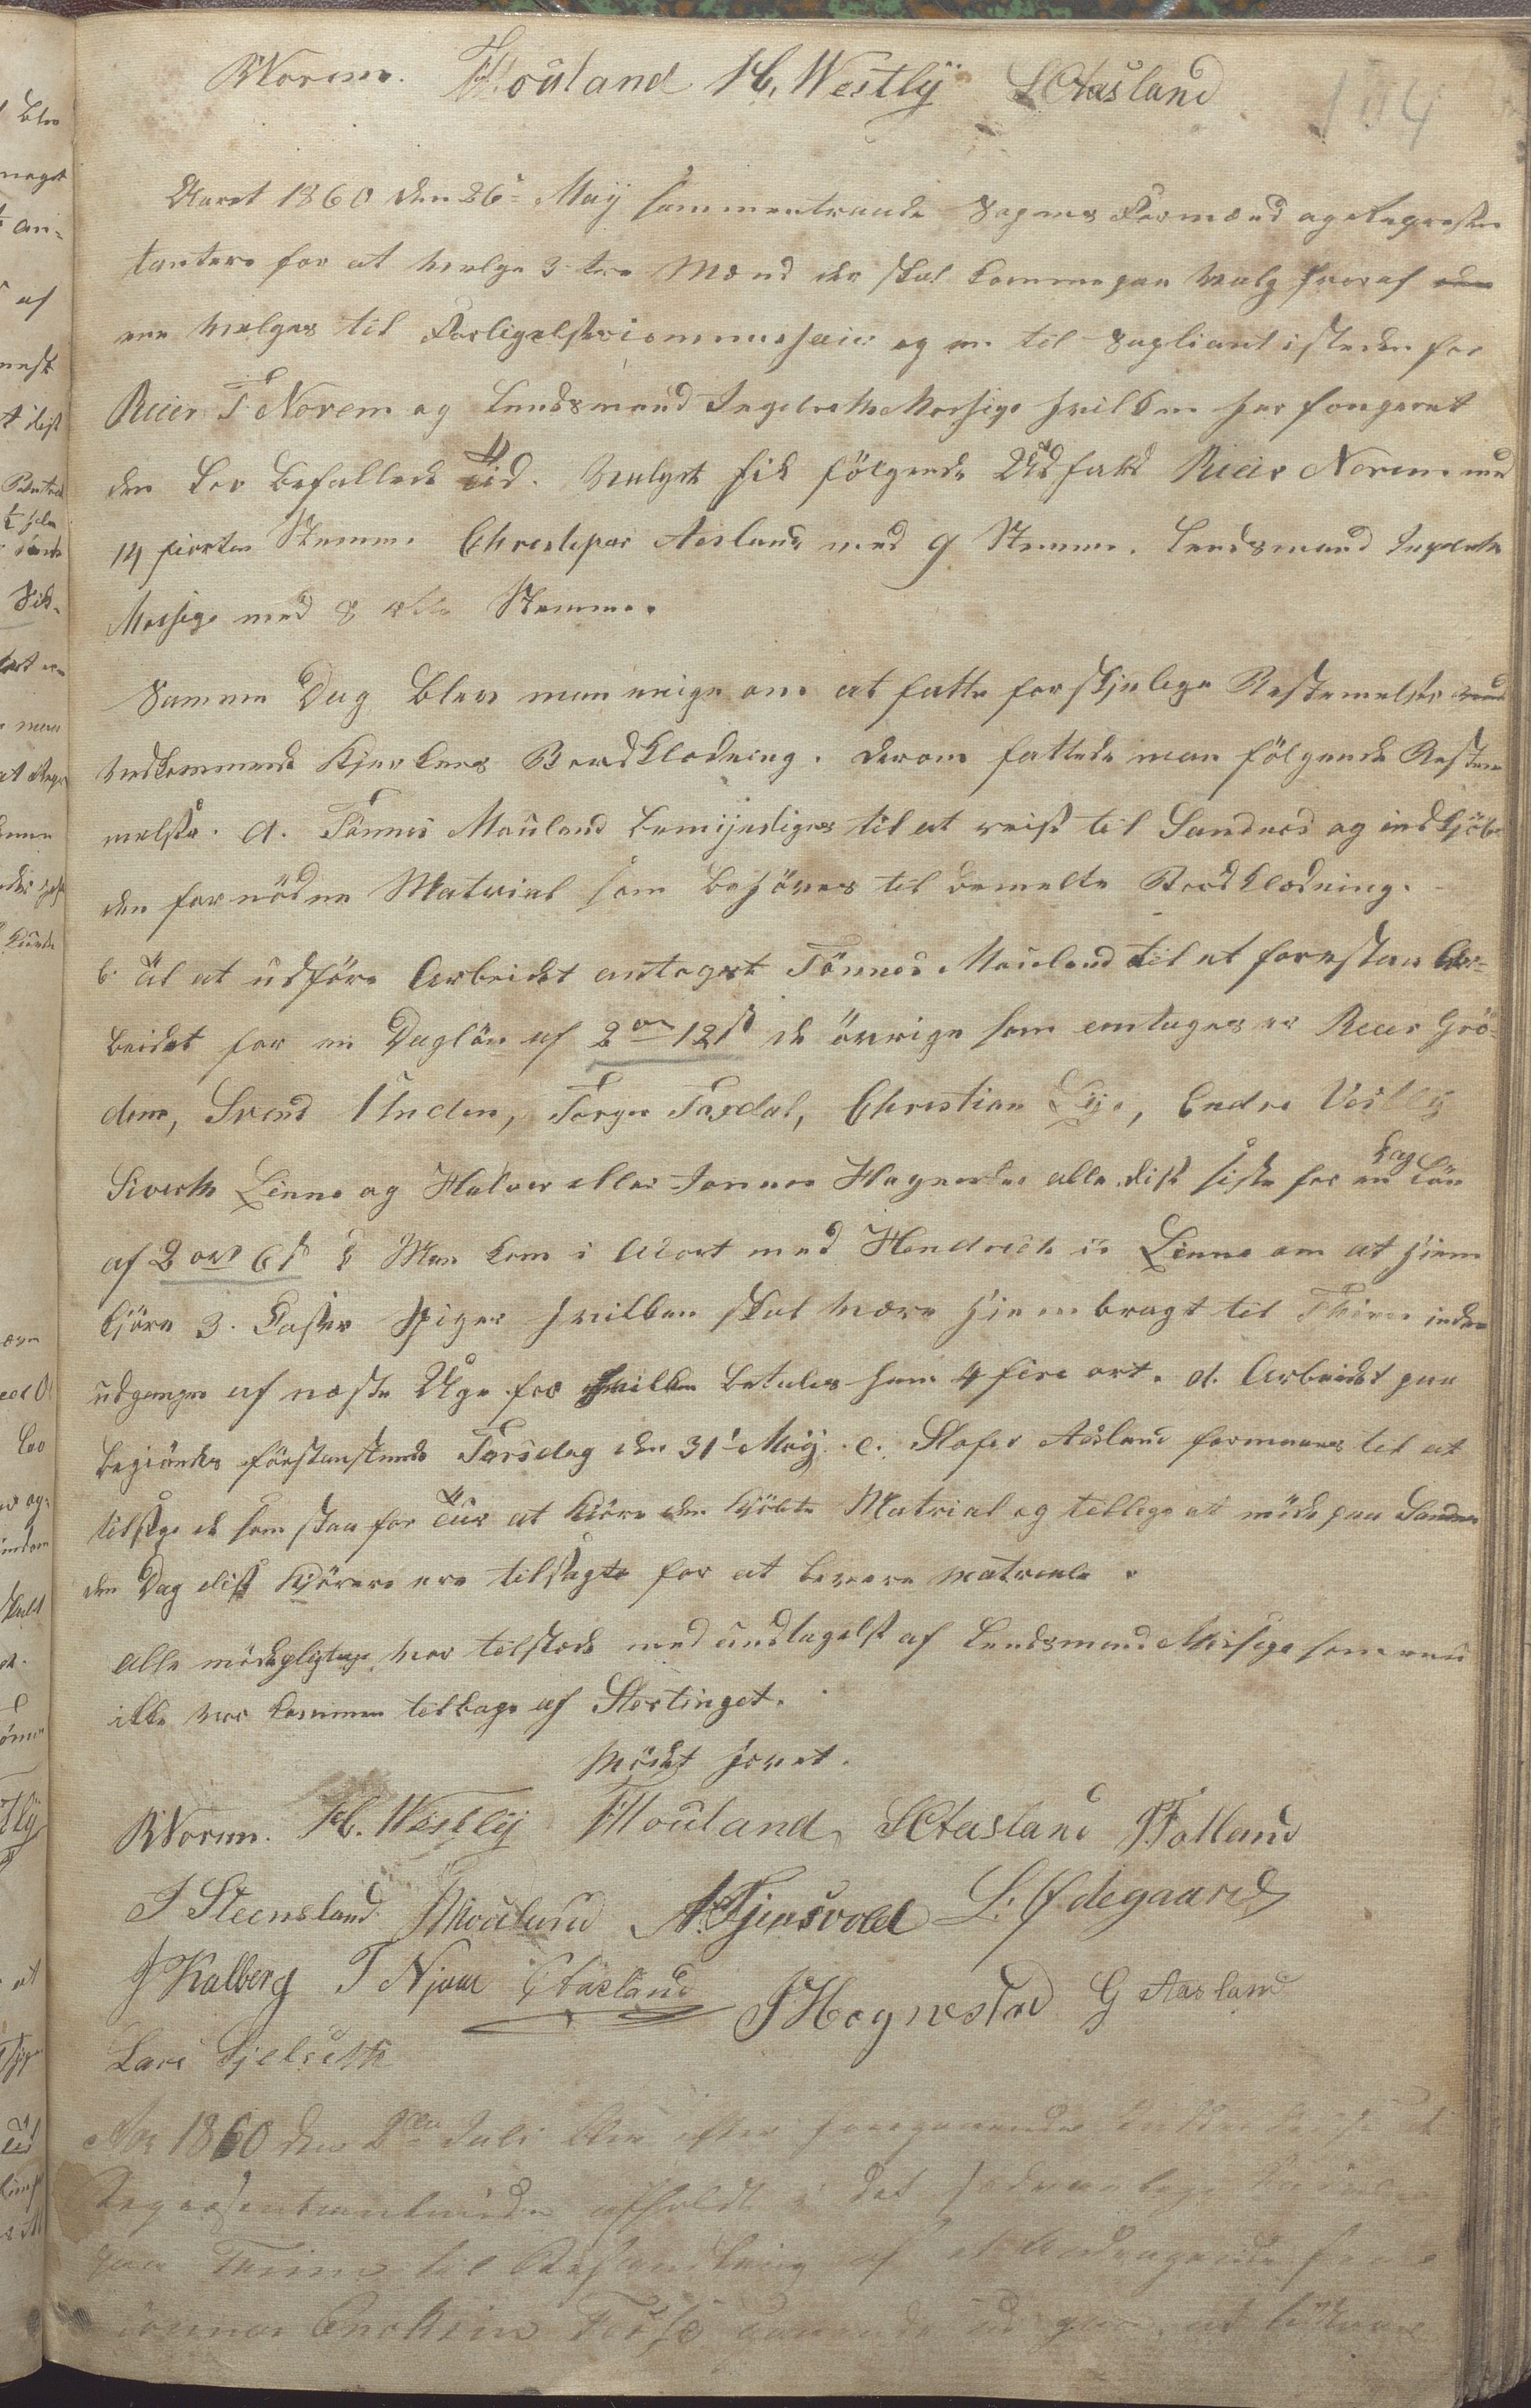 RNorem. THouland H. Westlÿ SOAasland
104
Aaret 1860 den 26de Maÿ sammentraade Sogens Formænd og Repræsen
tantere for at vælge 3 tre Mænd der skal komme paa Valg hvoraf
een vælges til Forligelsescommissair og en til Supliant isteden for
Reier T Norem og Lendsmand Ingebreth Mossige hvilken har fongeret
den Lov befallede Tid. Valget fik fölgende Udfald Reier Norem med
14 fiorten Stemme. Christopar Aasland med 9 Stemme. Lendsmand Ingebreth
Mossige med 8 otte Stemme.
Samme Dag blev man enige om at fatte forskjelige Bestemelse
vedkommende Kjerkens Bordklædning. Derom fattede man fölgende Bestem
melse. a. Tönnes Mauland bemÿndiges til at reise til Sandnes og indkjöbe
den fornödne Matrial som behöves til bemelte Bordklædning.
b. til at udföre Arbeidet antoges Tönnes Mauland til at forestaa Ar-
beidet for en Daglön af 2 ort 12 s de övrige som antages er Reier Grö-
dem, Svend Unden, Torger Taxdal, Christian Lye, Endre Vestlÿ
Siverth Linne og Halvor eller Tonnes Hognestad alle disse siste for en Dag Lön
af 2 ort 6 s Man kom i Acort med Hendrich Linne om at hiem
kjöre 3 Kasser Spiger hvilken skal være hiembragt til Thime inden
udgangen af næste Uge for hvilken betales ham 4 fire ort. d. Arbeidet paa
begiöndes förstanstunde Torsdag den 31te Maÿ. e. Stoffer Aasland formanes til at
tilsige de som staa for Tur at kiöre den kjöbte Matrial og tillige at möde paa Sandnes
den Dag disse Kjörere ere tilsagte for at levere matriale.
Alle mödepligtige var tilstede med undtagelse af Lendsmand Mossige som enu
ikke var kommen tilbage af Stortinget.
Mödet hævet.
RNorem. H. Westlÿ THouland SOAasland TTotland
T Steensland TMoulund A. Tjensvold L. Ødegaard
J Kalberg T Njaa CAasland THognestad G Aasland
Lars Fjelseth
Aar 1860 den 2den Juli blev efter foregaaende
Repræsentantmöde afholdt i det sædvanlige
paa Time til Behandling af et Andragende fra